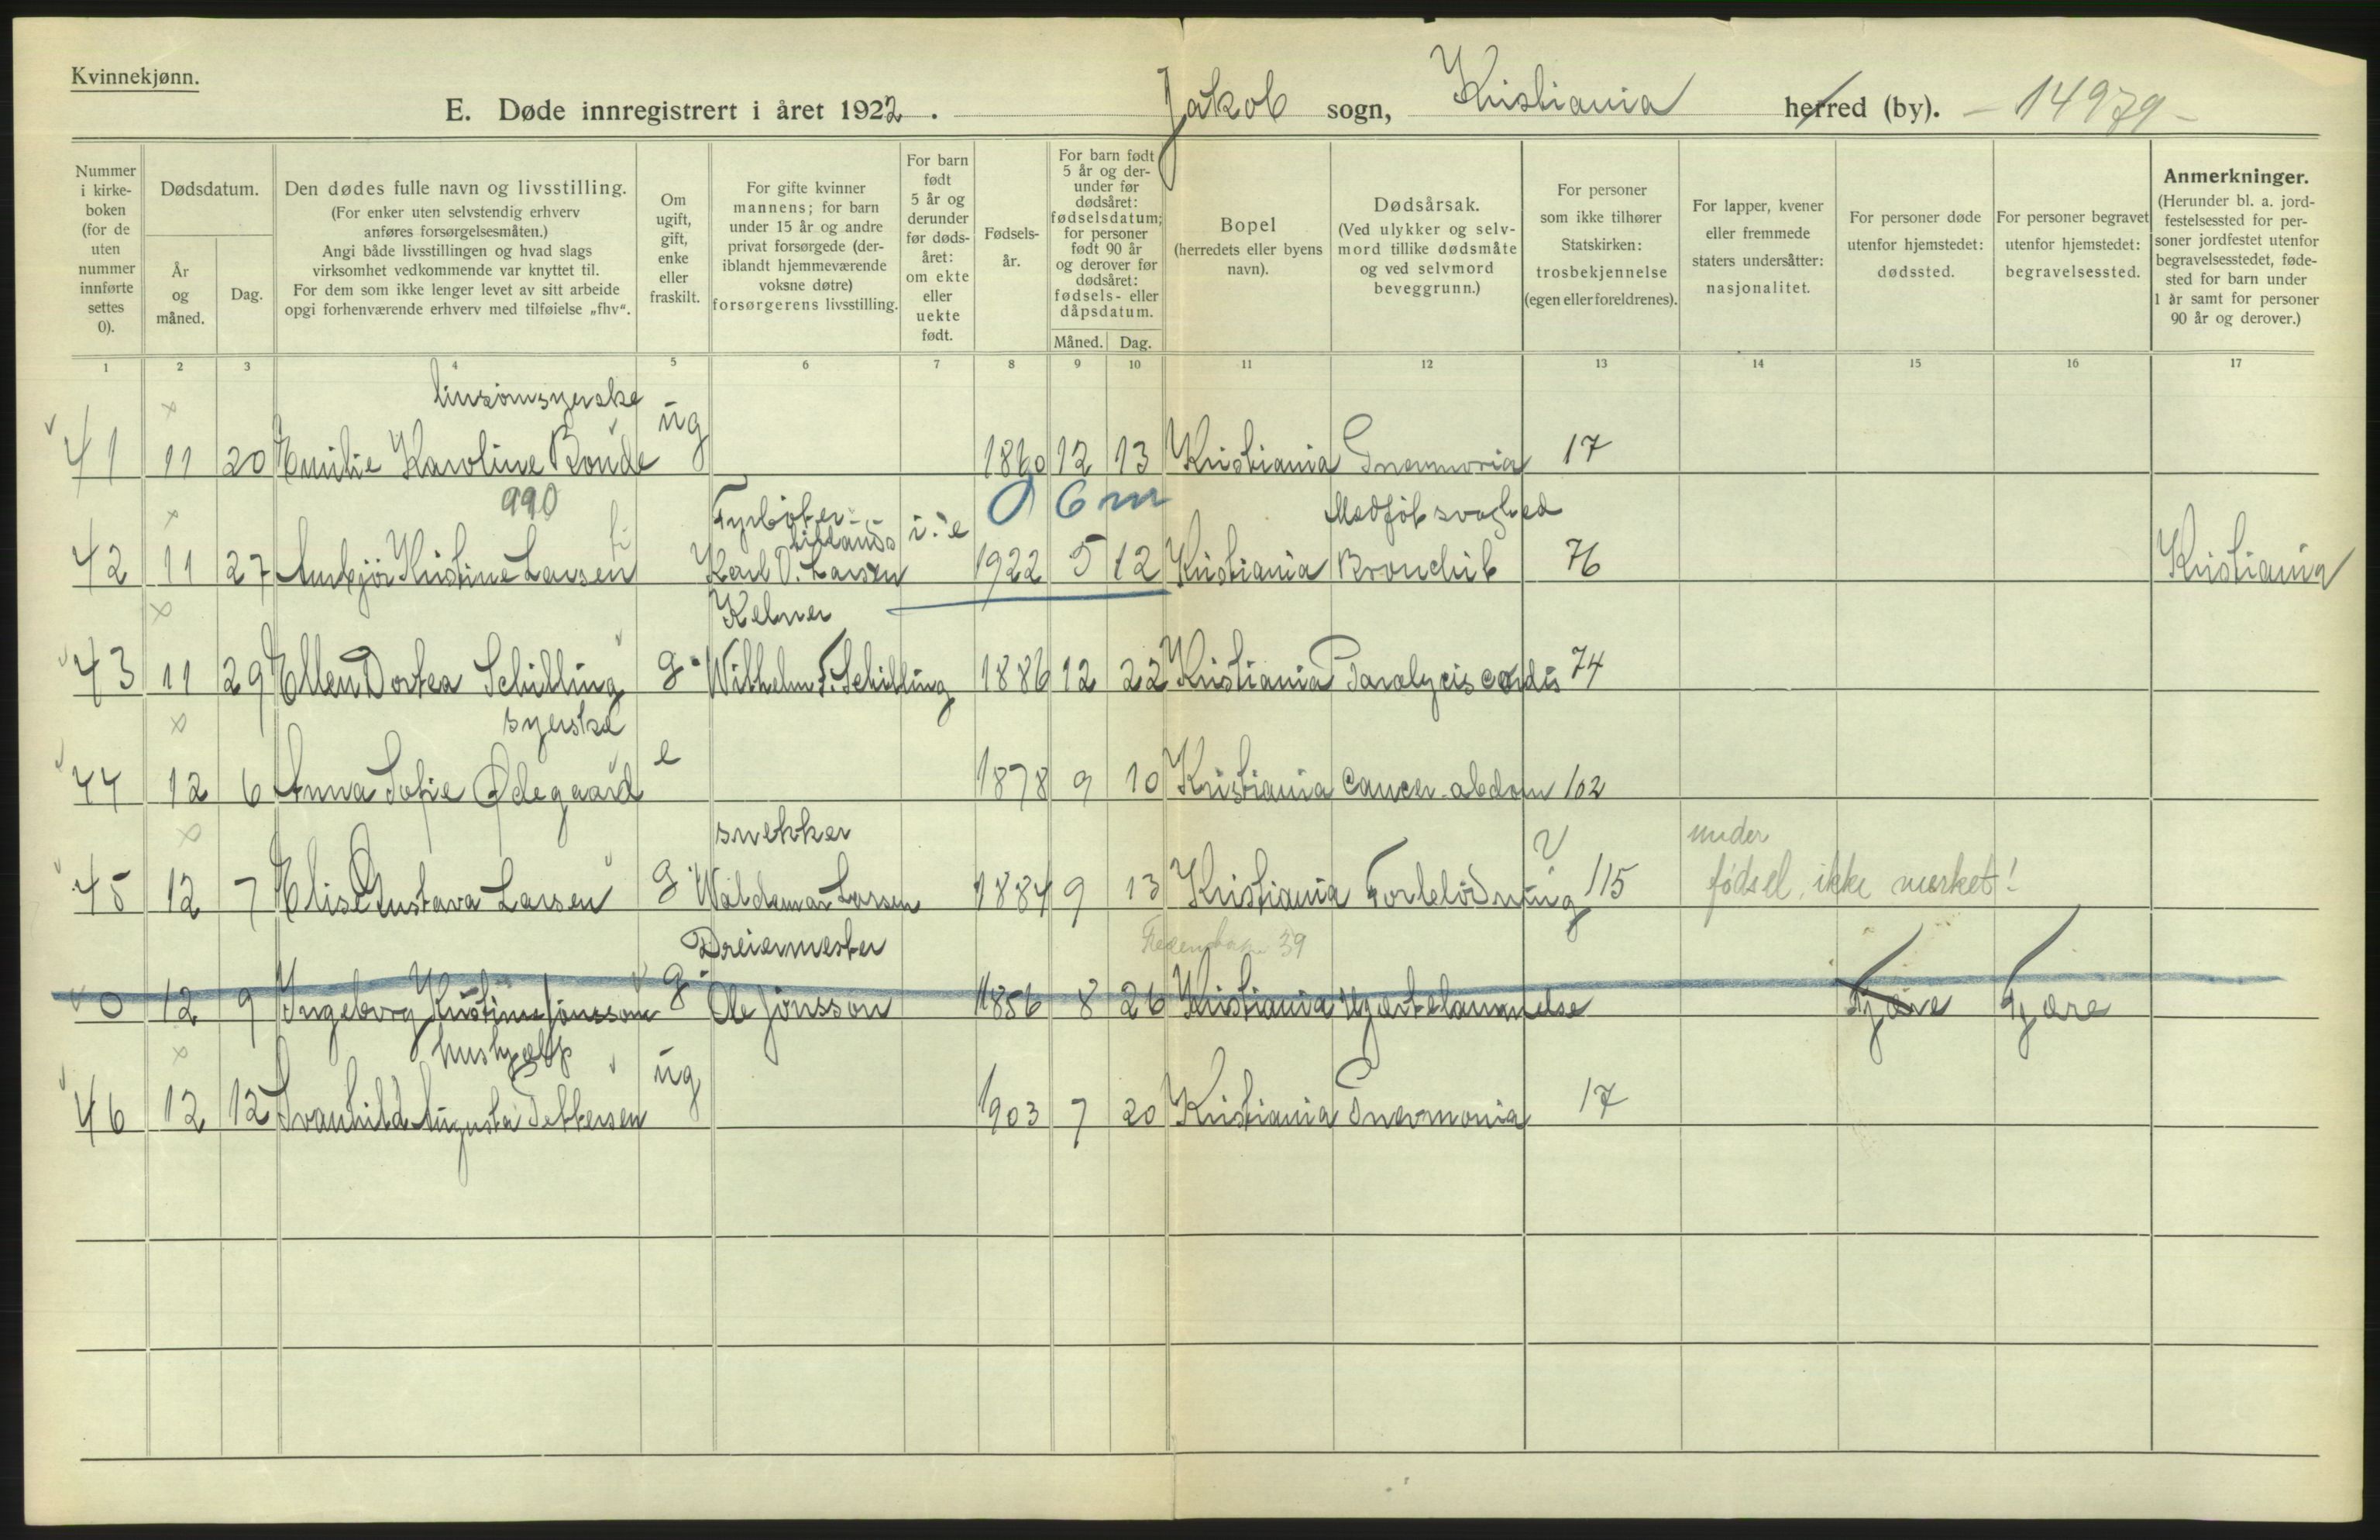 Kvinnekjønn.
E. Døde innregistrert i året 1922. Jakob sogn, Kristiania herred (by). - 14979 -
Nummer i kirkeboken (for de uten nummer innførte settes 0).
Dødsdatum.
År og måned.
Dag.
Den dødes fulle navn og livsstilling.
(For enker uten selvstendig erhverv anføres forsørgelsesmåten.)
Angi både livsstillingen og hvad slags virksomhet vedkommende var knyttet til.
For dem som ikke lenger levet av sitt arbeide opgi forhenværende erhverv med tilføielse „fhv“.
Om ugift, gift, enke eller fraskilt.
For gifte kvinner mannens; for barn under 15 år og andre privat forsørgede (deriblandt hjemmeværende voksne døtre) forsørgerens livsstilling.
For barn født 5 år og derunder før dødsåret: om ekte eller uekte født.
Fødselsår.
For barn født 5 år og derunder før dødsåret: fødselsdatum; for personer født 90 år og derover før dødsåret: fødsels- eller dåpsdatum.
Måned. Dag.
Bopel (herredets eller byens navn).
Dødsårsak.
(Ved ulykker og selvmord tillike dødsmåte og ved selvmord beveggrunn.)
For personer som ikke tilhører Statskirken: trosbekjennelse (egen eller foreldrenes).
For lapper, kvener eller fremmede staters undersåtter: nasjonalitet.
For personer døde utenfor hjemstedet: dødssted.
For personer begravet utenfor hjemstedet: begravelsessted.
Anmerkninger.
(Herunder bl. a. jordfestelsessted for personer jordfestet utenfor begravelsesstedet, fødested for barn under 1 år samt for personer 90 år og derover.)
1 2 3 4 5 6 7 8 9 10 11 12 13 14 15 16 17
linsømsyerske
41 11 20 Emilie Karoline Bonde ug 1860 12 13 Kristiania Pnevmonia 17
990 Fyrbøter 0 6 m Medføt svaghed
42 11 27 Annbjør Kristine Larsen Karl O. Larsen i. e 1922 5 12 Kristiania Bronchit 76 Kristiania
Kelner
43 11 29 Ellen Dortea Schilling g. Wilhelm F. Schilling 1886 12 22 Kristiania Paralysis cordis 74
syerske
44 12 6 Anna Sofie Ødegaard e 1878 9 10 Kristiania Cancer abdom 102
snekker under
45 12 7 Elise Gustava Larsen g. Waldemar Larsen 1884 9 13 Kristiania Forblødning 115 fødsel, ikke merket!
Dreiermester 39
0 12 9 Ingeborg Kristine Jonsson g. Ole Jonsson 1856 8 26 Kristiania Hjertelammelse Tjøme Tjøme
hushjælp
46 12 12 Svanhild Augusta Pettersen ug 1903 7 20 Kristiania Pnevmonia 17